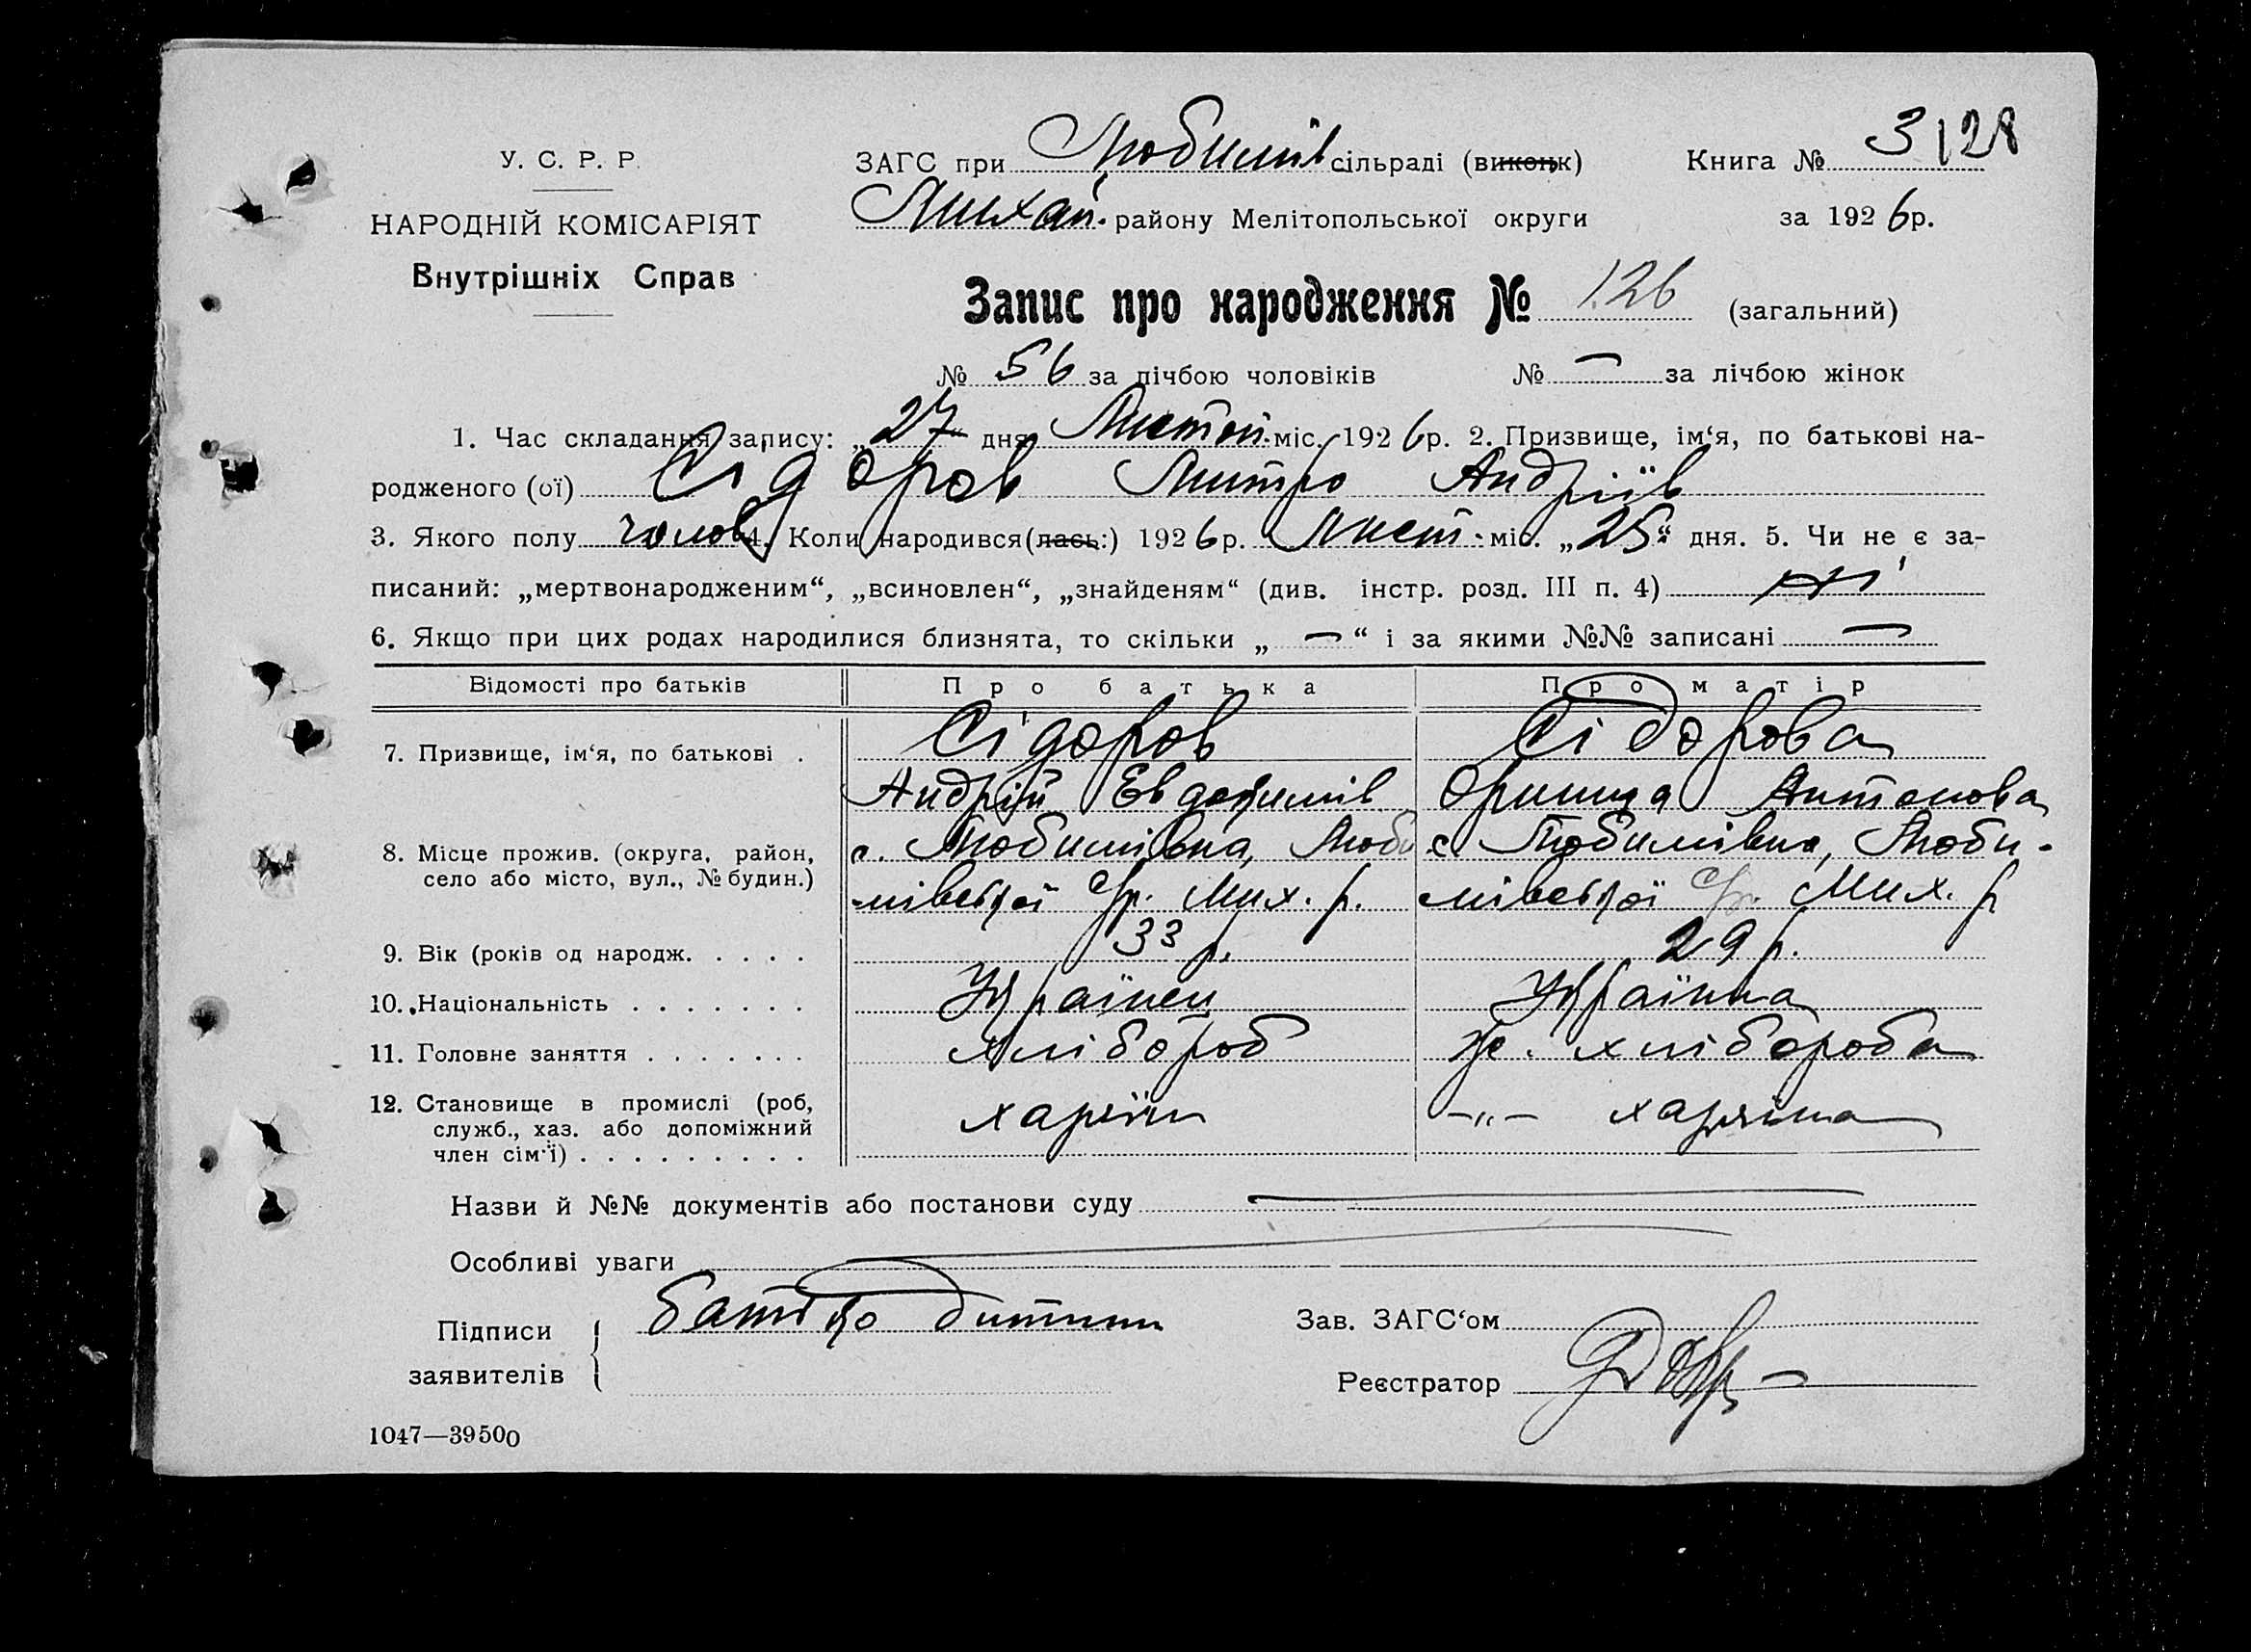 У. С. Р. Р.
НАРОДНІЙ КОМІСАРІЯТ
Внутрішніх Справ
ЗАГС при Любимів сільраді (виконк) Книга № 3 128
Михай. району Мелітопольської округи за 1926 р.
Запис про народження № 126 (загальний)
№ 56 за лічбою чоловіків № — за лічбою жінок
1. Час складання запису: „27 дня Листоп. міс. 1926 р. 2. Призвище, ім‘я, по батькові на-
родженого (ої) Сідоров Митро Андріїв
3. Якого полу чолов 4. Коли народився (лась:) 1926 р. Лист. міс. „25“ дня. 5. Чи не є за-
писаний: „мертвонародженим“, „всиновлен“, „знайденям“ (див. інстр. розд. III п. 4) ні
6. Якщо при цих родах народилися близнята, то скільки „ — “ і за якими №№ записані —
Відомості про батьків Про батька Про матір
7. Призвище, ім‘я, по батькові . Сідоров Сідорова
Андрій Евдокимів Орина Антонова
8. Місце прожив. (округа, район, с. Любимівка, Люби с. Любимівка, Люби-
село або місто, вул., № будин.) мівської с/р. Мих. р. мівської с/р. Мих. р
9. Вік (років од народж. . . . . 33 р. 29 р.
10. Національність . . . . . . . Українец Українка
11. Головне заняття . . . . . . . хлібороб ж. хлібороба
12. Становище в промислі (роб,
служб., хаз. або допоміжний
член сім‘ї) . . . . . . . . . -„-
Назви й №№ документів або постанови суду
Особливі уваги
Підписи батько дитини Зав. ЗАГС‘ом
заявителів Реєстратор
1047—39500